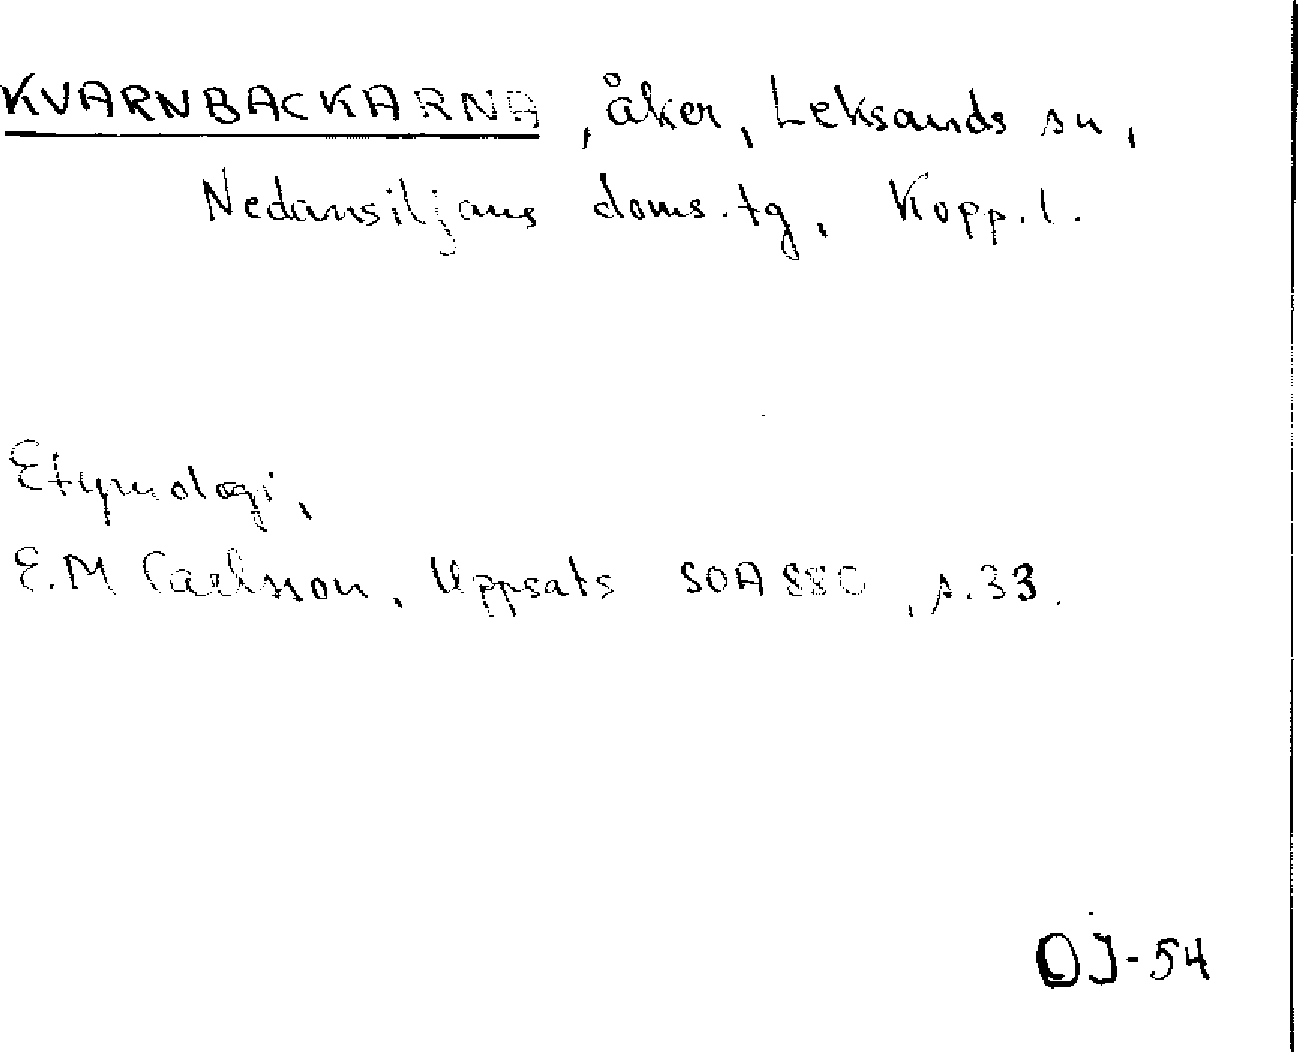 KVARNBACKARNA, åker, Leksands sn,
Nedansiljans doms.tg, Kopp.l.
Etymologi,
E.M Carlsson, Uppsats SOA 880, s.33.
OJ-54